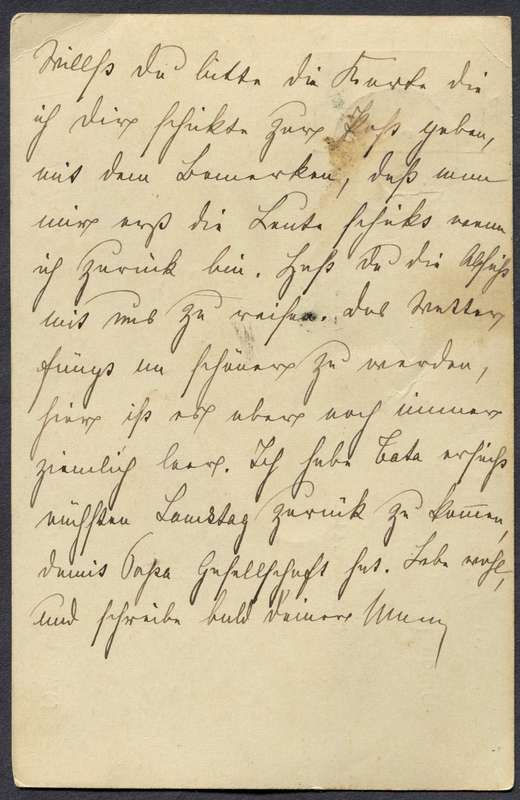 Willst du bitte die Karte die
ich dir schickte zur Post geben,
mit dem Bemerken, daß man
mir erst die Leute schickt wenn
ich zurück bin. Hast du die Absicht
mit uns zu reisen. Das Wetter
fängt an schöner zu werden,
hier ist es aber noch immer
ziemlich leer. Ich habe Tata ersucht
nächsten Samstag zurück zu kommen,
damit Papa Gesellschaft hat. Lebe wohl,
und schreibe bald deiner